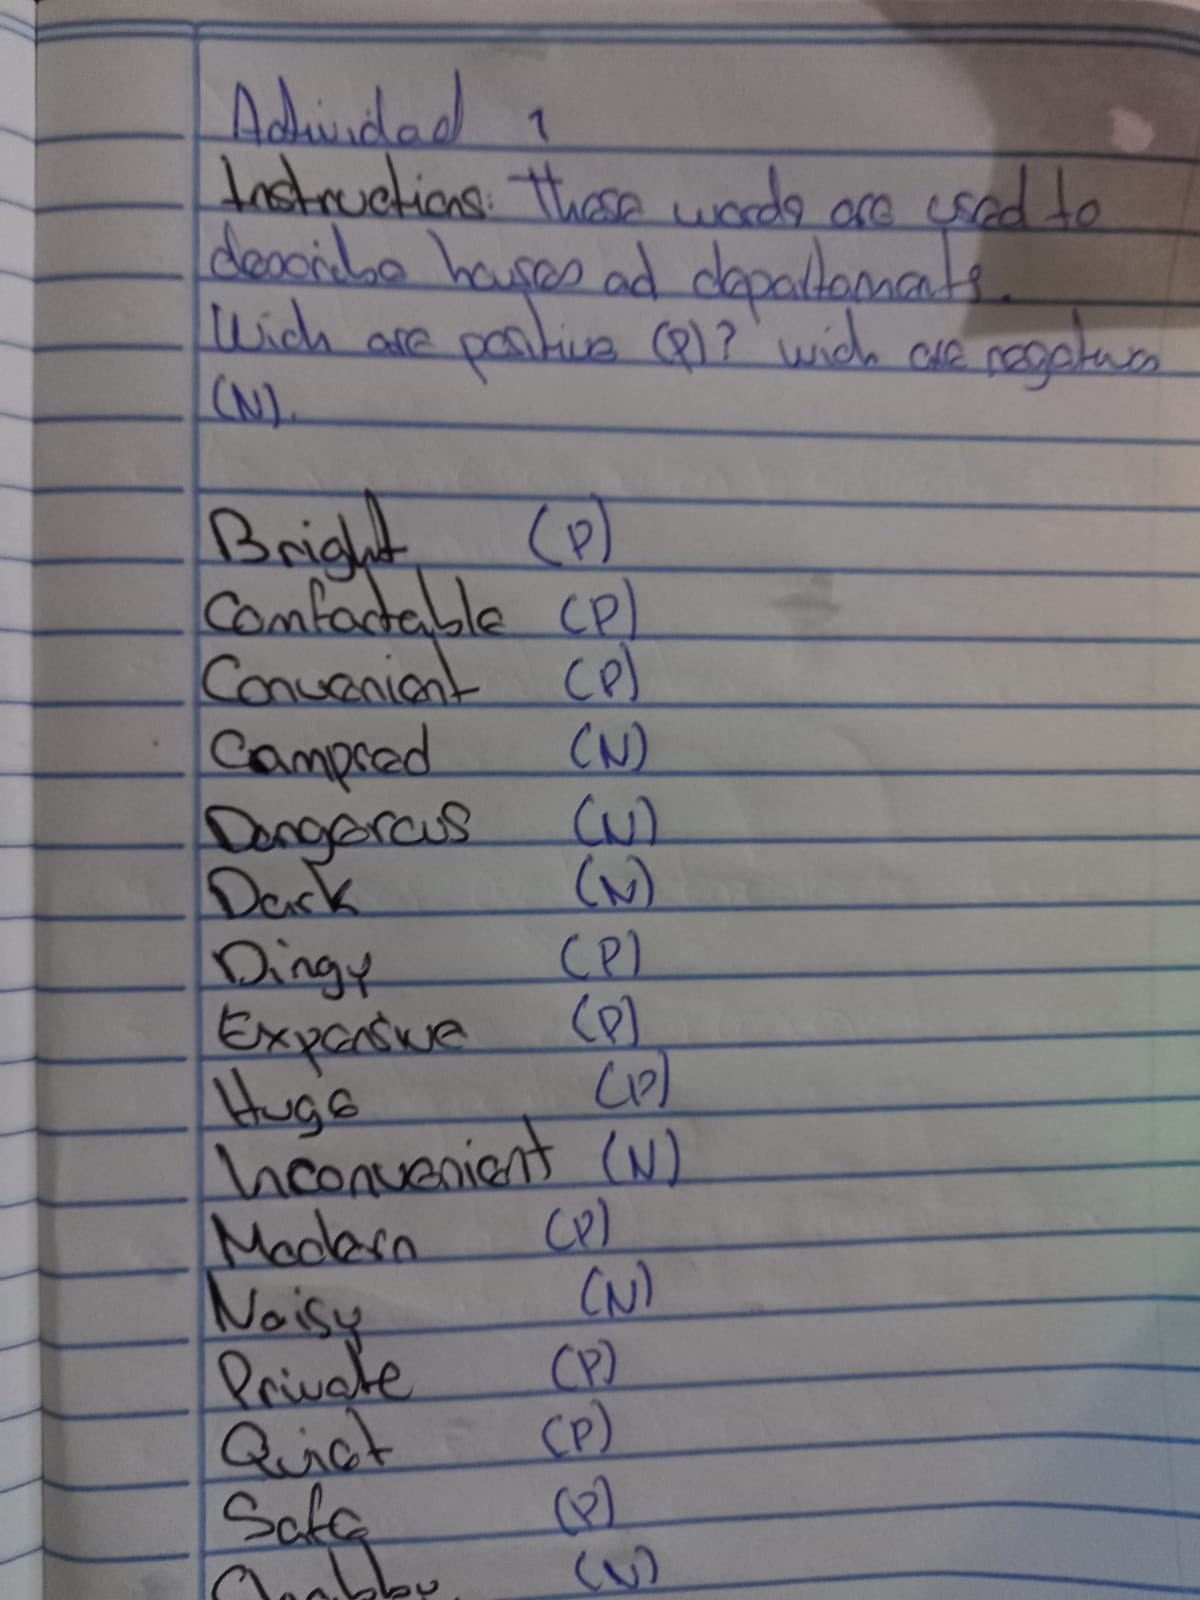 Actividad 1
Instructions: These words are used to
describe houses ad depaltaments.
Wich are positive (P)? wich are negatives
(N).
Bright (P)
Comfortable (P)
Convenient (P)
Campred (N)
Dangerous (N)
Dark (N)
Dingy (P)
Expensive (P)
Huge (P)
Inconvenient (N)
Modern (P)
Noisy (N)
Private (P)
Quiet (P)
Safe (P)
Shabby (N)